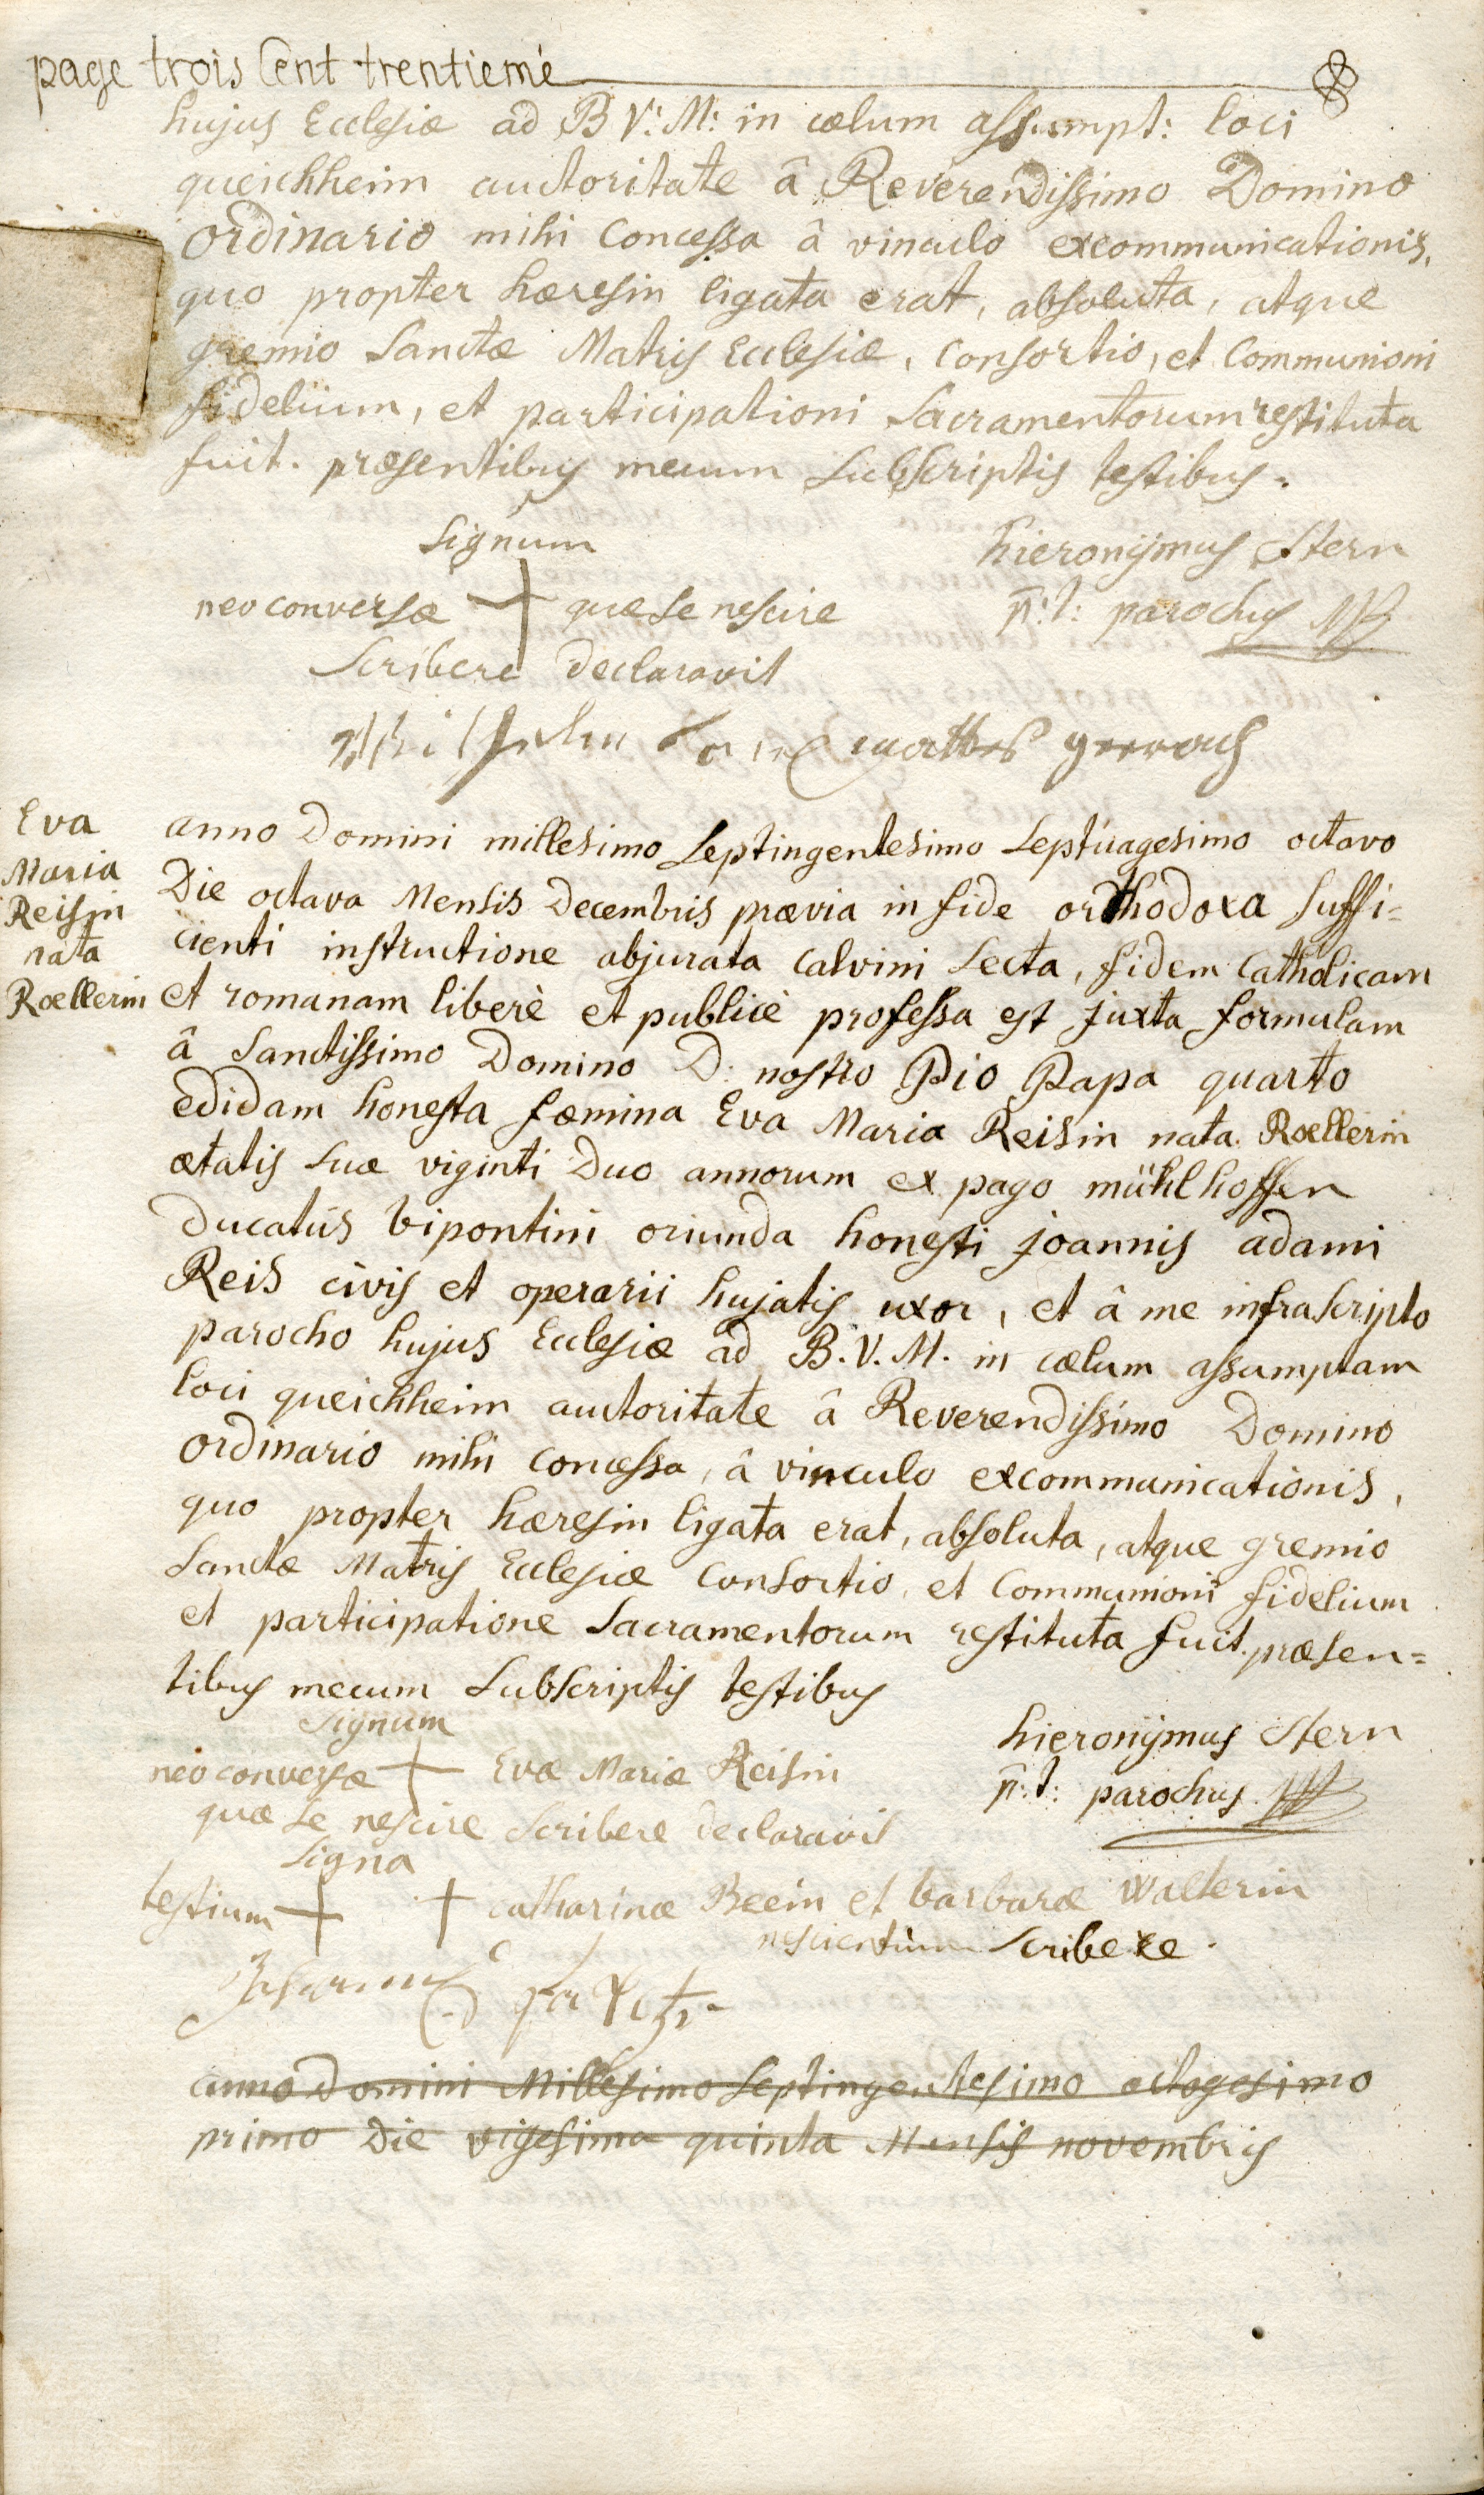 page trois Cent trentieme
hujus Ecclesiæ ad B V: M: in cœlum assumpt: loci
queichheim auctoritate â Reverendissimo Domino
Ordinario mihi Concessa â vinculo excommunicationis,
quo propter hæresin ligata erat, absoluta, atque
gremio Sanctæ Matris Ecclesiæ, Consortio, et Communioni
fidelium, et participationi Sacramentorum restituta
fuit. præsentibus mecum Subscriptis testibus.
Signum
hieronÿmus Stern
neo conversæ quæ se nescire
p:t: parochus
Scribere declaravit
Eva
Maria
Reisin
nata
Roellerin
anno Domini millesimo Septingentesimo Septuagesimo octavo
Die octava Mensis Decembris prævia in fide orthodoxa Suffi=
cienti instructione abjurata Calvini Secta, fidem Catholicam
et romanam liberè et publicè professa est juxta formulam
â Sanctissimo Domino D: nostro Pio Papa quarto
edidam honesta fœmina Eva Maria Reisin nata Roellerin
ætatis Suæ viginti Duo annorum ex pago mühlhoffen
Ducatûs bipontini oriunda honesti joannis adami
Reis civis et operarii hujatis uxor, et â me infrascripto
parocho hujus Ecclesiæ ad B. V. M. in cœlum assumptam
loci queichheim auctoritate â Reverendissimo Domino
Ordinario mihi concessa, â vinculo excommunicationis,
quo propter hæresin ligata erat, absoluta, atque gremio
Sanctæ Matris Ecclesiæ Consortio, et Communioni fidelium
et participatione Sacramentorum restituta fuit. præsen=
tibus mecum Subscriptis testibus
Signum
hieronÿmus Stern
neo conversæ Evæ Mariæ Reisin
p:t: parochus
quæ se nescire Scribere declaravit
Signa
testium catharinæ Beein et barbaræ Walterin
nescientium Scribere.
anno Domini Millesimo Septingentesimo octogesimo
primo Die vigesima quinta Mensis novembris